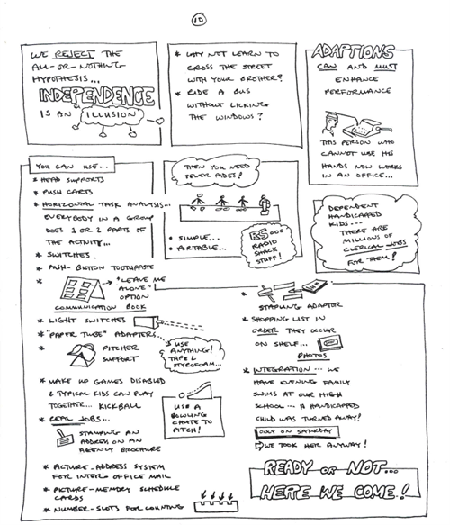 WE REJECT THE
ALL-OR-NOTHING
HYPOTHESIS...
INDEPENDENCE
IS AN ILLUSION
* WHY NOT LEARN TO
CROSS THE STREET
WITH YOUR BROTHER?
* RIDE A BUS
WITHOUT LICKING
THE WINDOWS?
ADAPTIONS
CAN AND MUST
ENHANCE
PERFORMANCE
THIS PERSON WHO
CANNOT USE HIS
HANDS NOW WORKS
IN AN OFFICE...
YOU CAN USE...
* HEAD SUPPORTS
* PUSH CARTS
* HORIZONTAL TASK ANALYSIS...
EVERYBODY IN A GROUP
DOES 1 OR 2 PARTS OF
THE ACTIVITY...
* SWITCHES
* PUSH-BUTTON TOOTHPASTE
*
"LEAVE ME
ALONE"
OPTION
COMMUNICATION BOOK
* LIGHT SWITCHES
* "PAPER TUBE" ADAPTERS
*
PITCHER
SUPPORT
* USE
ANYTHING!
TAPE &
* MAKE UP GAMES DISABLED
& TYPICAL KIDS CAN PLAY
TOGETHER... KICKBALL
USE A
BOWLING
CHUTE TO
PITCH!
* REAL JOBS...
STAMPING AN
ADDRESS ON AN
AGENCY BROCHURE
* PICTURE-ADDRESS SYSTEM
FOR INTER OFFICE MAIL
* PICTURE-MEMORY SCHEDULE
CARDS
* NUMBER-SLOTS FOR COUNTING
THEN YOU NEED
FEWER AIDES!
* SIMPLE...
* PORTABLE...
RADIO
SHACK
STUFF!
DEPENDENT
HANDICAPPED
KIDS...
THERE ARE
MILLIONS OF
CLERICAL JOBS
FOR THEM!
*
STAPLING ADAPTOR
* SHOPPING LIST IN
ORDER THEY OCCUR
ON SHELF...
PHOTOS
* INTEGRATION... WE
HAVE EVENING FAMILY
SWIMS AT OUR HIGH
SCHOOL... A HANDICAPPED
CHILD WAS TURNED AWAY!
ONLY ON SATURDAY
WE TOOK HER ANYWAY!
READY OR NOT...
HERE WE COME!